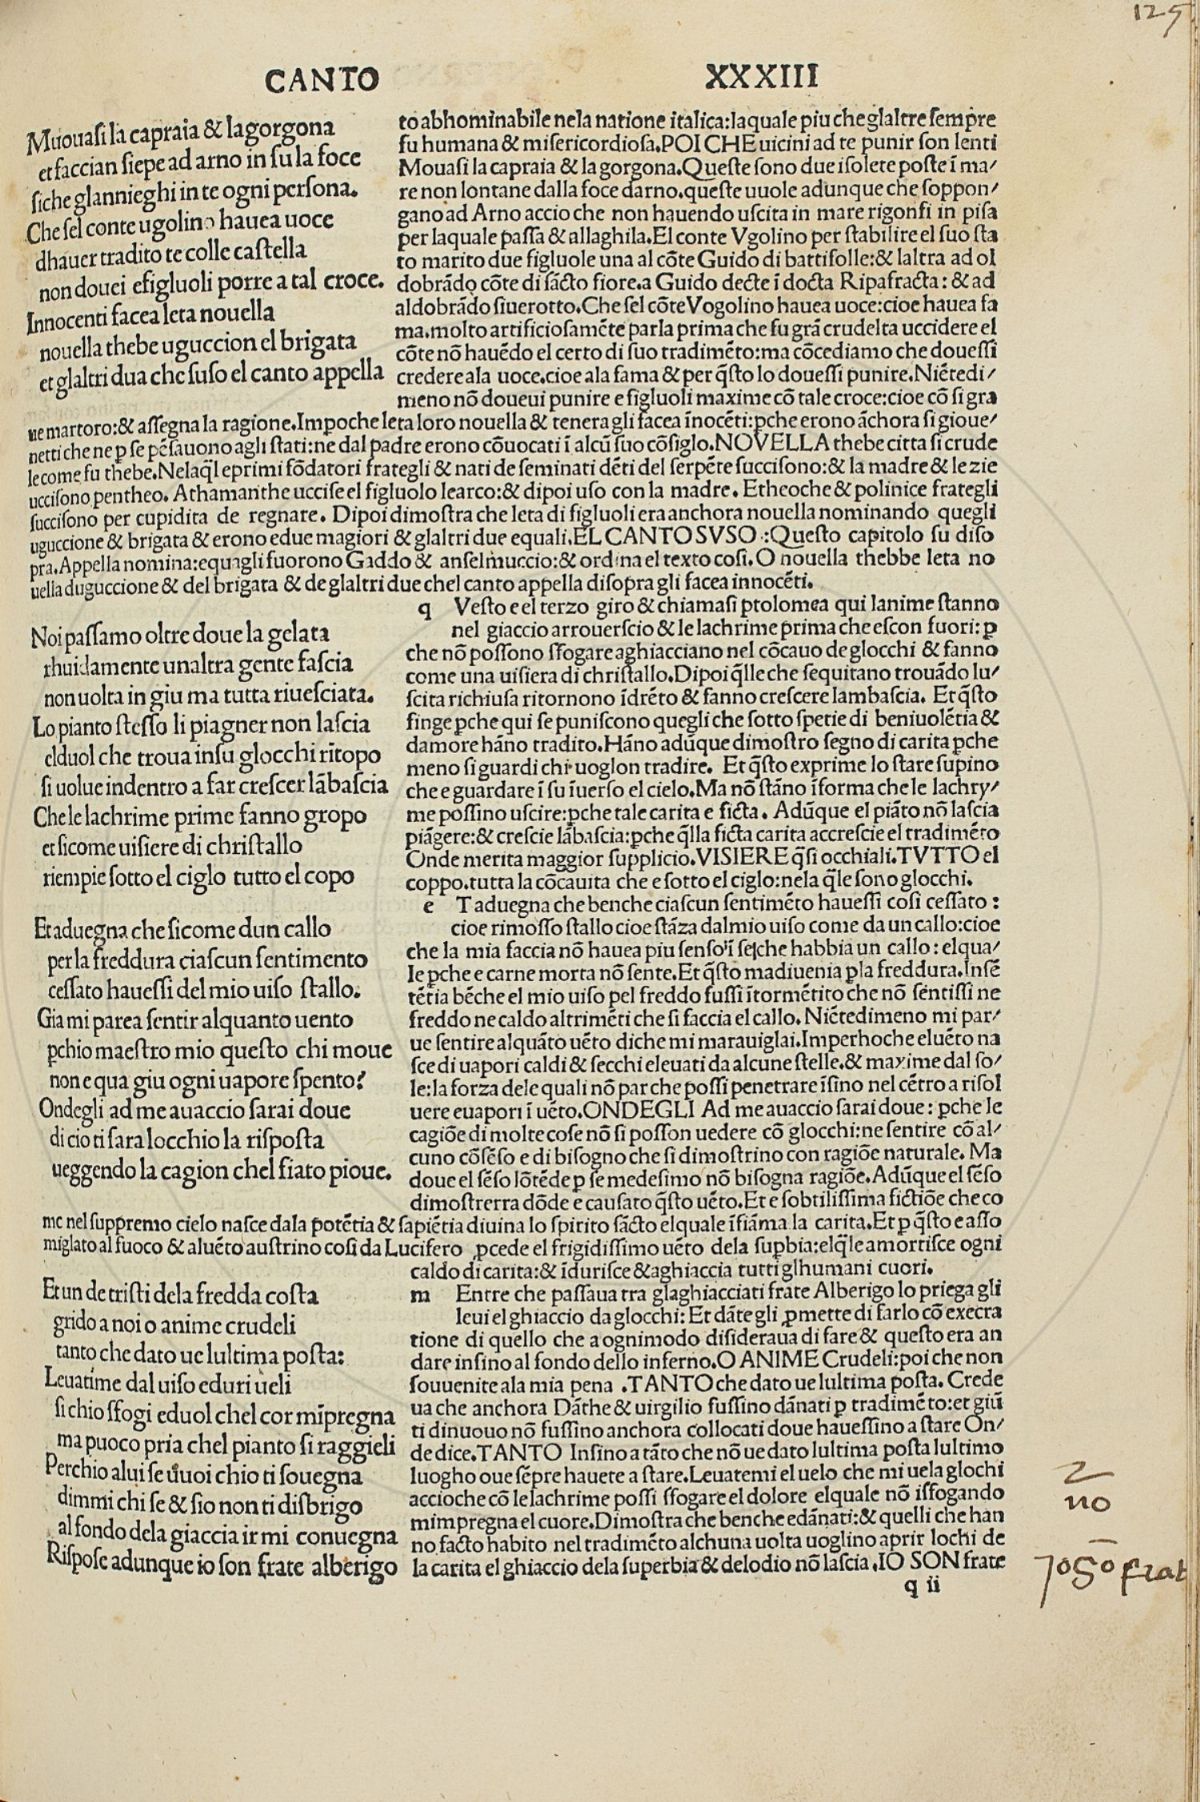 125
CANTO XXXIII
Muouasi la capraia & lagorgona
et faccian siepe ad arno in su la foce
siche glannieghi in te ogni persona.
Che sel conte ugolino hauea uoce
dhauer tradito te colle castella
non douei efigluoli porre a tal croce.
Innocenti facea leta nouella
nouella thebe uguccion el brigata
et glaltri dua che suso el canto appella
to abhominabile nela natione italica:laquale piu che glaltre sempre
fu humana & misericordiosa.POI CHE uicini ad te punir son lenti
Mouasi la capraia & la gorgona.Queste sono due isolete poste ī ma/
re non lontane dalla foce darno.queste uuole adunque che soppon/
gano ad Arno accio che non hauendo uscita in mare rigonfi in pisa
per laquale passa & allaghila.El conte Vgolino per stabilire el suo sta
to marito due figluole una al cōte Guido di battifolle:& laltra ad ol
dobrādo cōte di sācto fiore.a Guido decte ī docta Ripafracta: & ad
aldobrādo siuerotto.Che sel cōte Vogolino hauea uoce:cioe hauea fa
ma.molto artificiosamēte parla prima che fu grā crudelta uccidere el
cōte nō hauēdo el certo di suo tradimēto:ma cōcediamo che douessi
credere ala uoce.cioe ala fama & per q̄sto lo douessi punire.Niētedi/
meno nō doueui punire e figluoli maxime cō tale croce:cioe cō si gra
ue martoro:& assegna la ragione.Impoche leta loro nouella & tenera gli facea īnocēti:pche erono āchora si gioue/
netti che ne p se pēsauono agli stati:ne dal padre erono cōuocati ī alcū suo cōsiglo.NOVELLA thebe citta si crude
le come fu thebe.Nelaq̄l e primi fōdatori frategli & nati de seminati dēti del serpēte succisono:& la madre & le zie
uccisono pentheo. Athamanthe uccise el figluolo learco:& dipoi uso con la madre. Etheoche & polinice frategli
succisono per cupidita de regnare. Dipoi dimostra che leta di figluoli era anchora nouella nominando quegli
uguccione & brigata & erono e due magiori & glaltri due equali.EL CANTO SVSO :Questo capitolo su diso
pra.Appella nomina:equagli fuorono Gaddo & anselmuccio:& ordina el texto cosi.O nouella thebbe leta no
uella duguccione & del brigata & de glaltri due chel canto appella disopra gli facea innocēti.
Noi passamo oltre doue la gelata
rhuidamente unaltra gente fascia
non uolta in giu ma tutta riuesciata.
Lo pianto stesso li piagner non lascia
el duol che troua insu glocchi rītopo
si uolue indentro a far crescer lābascia
Che le lachrime prime fanno gropo
et sicome uisiere di christallo
riempie sotto el ciglo tutto el copo
q Vesto e el terzo giro & chiamasi ptolomea qui lanime stanno
nel giaccio arrouerscio & le lachrime prima che escon fuori: p
che nō possono sfogare aghiacciano nel cōcauo de glocchi & fanno
come una uisiera di christallo.Dipoi q̄lle che sequitano trouādo lu/
scita richiusa ritornono īdrēto & fanno crescere lambascia. Et q̄sto
finge pche qui se puniscono quegli che sotto spetie di beniuolētia &
damore hāno tradito.Hāno adūque dimostro segno di carita pche
meno si guardi chi uoglon tradire. Et q̄sto exprime lo stare supino
che e guardare ī su īuerso el cielo.Ma nō stāno īforma che le lachry/
me possino uscire:pche tale carita e ficta. Adūque el piāto nō lascia
piāgere:& crescie lābascia:pche q̄lla ficta carita accrescie el tradimēto
Onde merita maggior supplicio.VISIERE q̄si occhiali.TVTTO el
coppo.tutta la cōcauita che e sotto el ciglo:nela q̄le sono glocchi.
Et aduegna che sicome dun callo
per la freddura ciascun sentimento
cessato hauessi del mio uiso stallo.
Gia mi parea sentir alquanto uento
pchio maestro mio questo chi moue
non e qua giu ogni uapore spento?
Ondegli ad me auaccio sarai doue
di cio ti fara locchio la risposta
ueggendo la cagion chel fiato pioue.
e T aduegna che benche ciascun sentimēto hauessi cosi cessato :
cioe rimosso stallo cioe stāza dalmio uiso come da un callo:cioe
che la mia faccia nō hauea piu senso ī se che habbia un callo: elqua/
le pche e carne morta nō sente.Et q̄sto madiuenia p la freddura.Insē
tētia bēche el mio uiso pel freddo fussi ītormētito che nō sentissi ne
freddo ne caldo altrimēti che si faccia el callo. Niētedimeno mi par/
ue sentire alquāto uēto diche mi marauiglai.Imperhoche eluēto na
sce di uapori caldi & secchi eleuati da alcune stelle.& maxime dal so/
le:la forza dele quali nō par che possi penetrare īsino nel cētro a risol
uere euapori ī uēto.ONDEGLI Ad me auaccio sarai doue: pche le
cagiōe di molte cose nō si posson uedere cō glocchi:ne sentire cō al/
cuno cōsēso e di bisogno che si dimostrino con ragiōe naturale. Ma
doue el sēso lōtēde p se medesimo nō bisogna ragiōe.Adūque el sēso
dimostrerra dōde e causato q̄sto uēto.Et e sobtilissima fictiōe che co
me nel suppremo cielo nasce dala potētia & sapiētia diuina lo spirito sācto elquale īfiāma la carita.Et p q̄sto e asso
miglato al fuoco & aluēto austrino cosi da Lucifero pcede el frigidissimo uēto dela supbia:elq̄le amortisce ogni
caldo di carita:& īdurisce &aghiaccia tutti glhumani cuori.
Et un de tristi dela fredda costa
grido a noi o anime crudeli
tanto che dato ue lultima posta:
Leuatime dal uiso eduri ueli
si chio sfogi eduol chel cor mīpregna
ma puoco pria chel pianto si raggieli
Perchio alui se uuoi chio ti souegna
dimmi chi se & sio non ti disbrigo
al fondo dela giaccia ir mi conuegna
Rispose adunque io son frate alberigo
m Entre che passaua tra glaghiacciati frate Alberigo lo priega gli
leui el ghiaccio da glocchi: Et dāte gli pmette di farlo cō execra
tione di quello che a ognimodo disideraua di fare & questo era an
dare insino al fondo dello inferno.O ANIME Crudeli:poi che non
souuenite ala mia pena .TANTO che dato ue lultima posta. Crede
ua che anchora Dāthe & uirgilio fussino dānati p tradimēto:et giū
ti dinuouo nō fussino anchora collocati doue hauessino a stare On/
de dice.TANTO Insino a tāto che nō ue dato lultima posta lultimo
luogho oue sēpre hauete a stare.Leuatemi el uelo che mi uela glochi
accioche cō le lachrime possi sfogare el dolore elquale nō isfogando
mimpregna el cuore.Dimostra che benche edānati:& quelli che han
no facto habito nel tradimēto alchuna uolta uoglino aprir lochi de
la carita el ghiaccio dela superbia & delodio nō lascia.IO SON frate
q ii
2
no